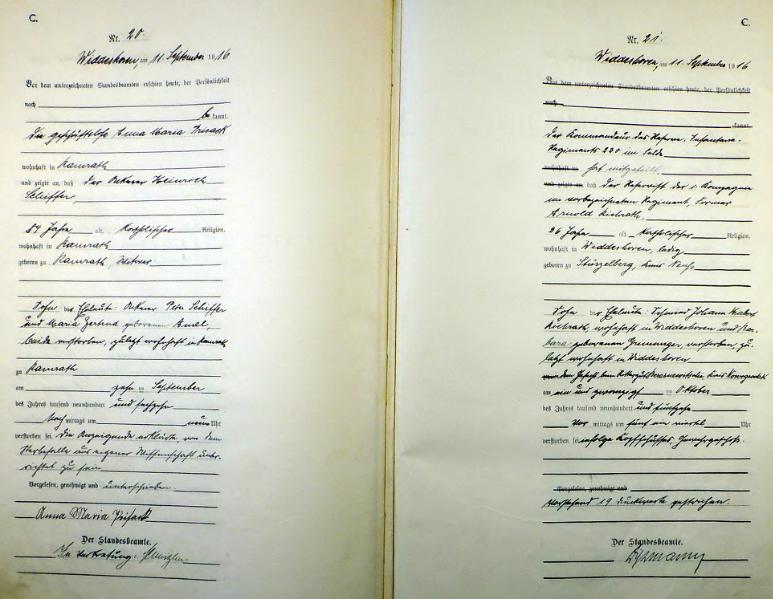 C.
Nr. 20.
Widdeshoven, am 11. September 1916
Vor dem unterzeichneten Standesbeamten erschien heute, der Persönlichkeit
nach
be kannt,
die geschäftslose Anna Maria
wohnhaft in Ramrath
und zeigte an, daß der Ackerer Heinrich
Schiffer,
84 Jahre alt, katholischer Religion,
wohnhaft in Ramrath
geboren zu Ramrath, Witwer
Sohn der Eheleute: Ackerer Peter Schiffer
und Maria geborenen
beide verstorben, zuletzt wohnhaft in Ramrath
zu Ramrath
am zehn ten September
des Jahres tausend neunhundert und sechzehn
Nach mittags um neun Uhr
verstorben sei. Die Anzeigende erklärte, von dem
Sterbefalle aus eigener Wissenschaft unter-
richtet zu sein
Vorgelesen, genehmigt und unterschrieben
Anna Maria
Der Standesbeamte.
In Vertretung:
C.
Nr. 21.
Widdeshoven, am 11. September 1916
Vor dem unterzeichneten Standesbeamten erschien heute, der Persönlichkeit
nach
kannt,
Der Kommandeur des Reserve-Infanterie-
Regiments 230 im Felde
wohnhaft in hat mitgeteilt,
und zeigte an, daß der Reservist der Kompagnie
im vorbezeichneten Regiment,
Arnold
26 Jahre alt, katholischer Religion,
wohnhaft in Widdeshoven, ledig
geboren zu Stürzelberg, Kreis Neuß
Sohn der Eheleute: Schmied Johann
wohnhaft in Widdeshoven und Bar-
bara geborenen verstorben, zu-
letzt wohnhaft in Widdeshoven
am ein und zwanzigsten Oktober
des Jahres tausend neunhundert und fünfzehn
Vor mittags um fünf ein viertel Uhr
verstorben sei infolge Kopfschusses
Vorgelesen, genehmigt und
Vorstehend 19 Druckworte gestrichen.
Der Standesbeamte.